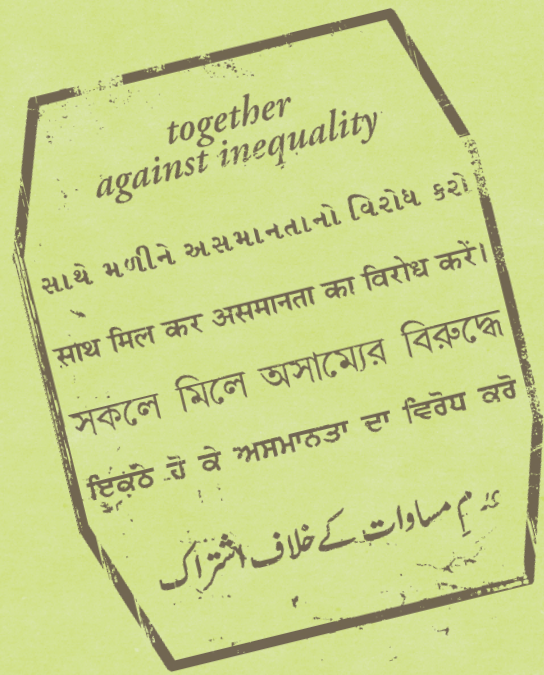 together
against inequality
સાથે મળીને અસમાનતાનો વિરોધ કરો
साथ मिल कर असमानता का विरोध करें।
সকলে মিলে অসাম্যের বিরুদ্ধে
ਇਕਠੇ ਹੋ ਕੇ ਅਸਮਾਨਤਾ ਦਾ ਵਿਰੋਧ ਕਰੋ
عدم مساوات کے خلاف اشتراک